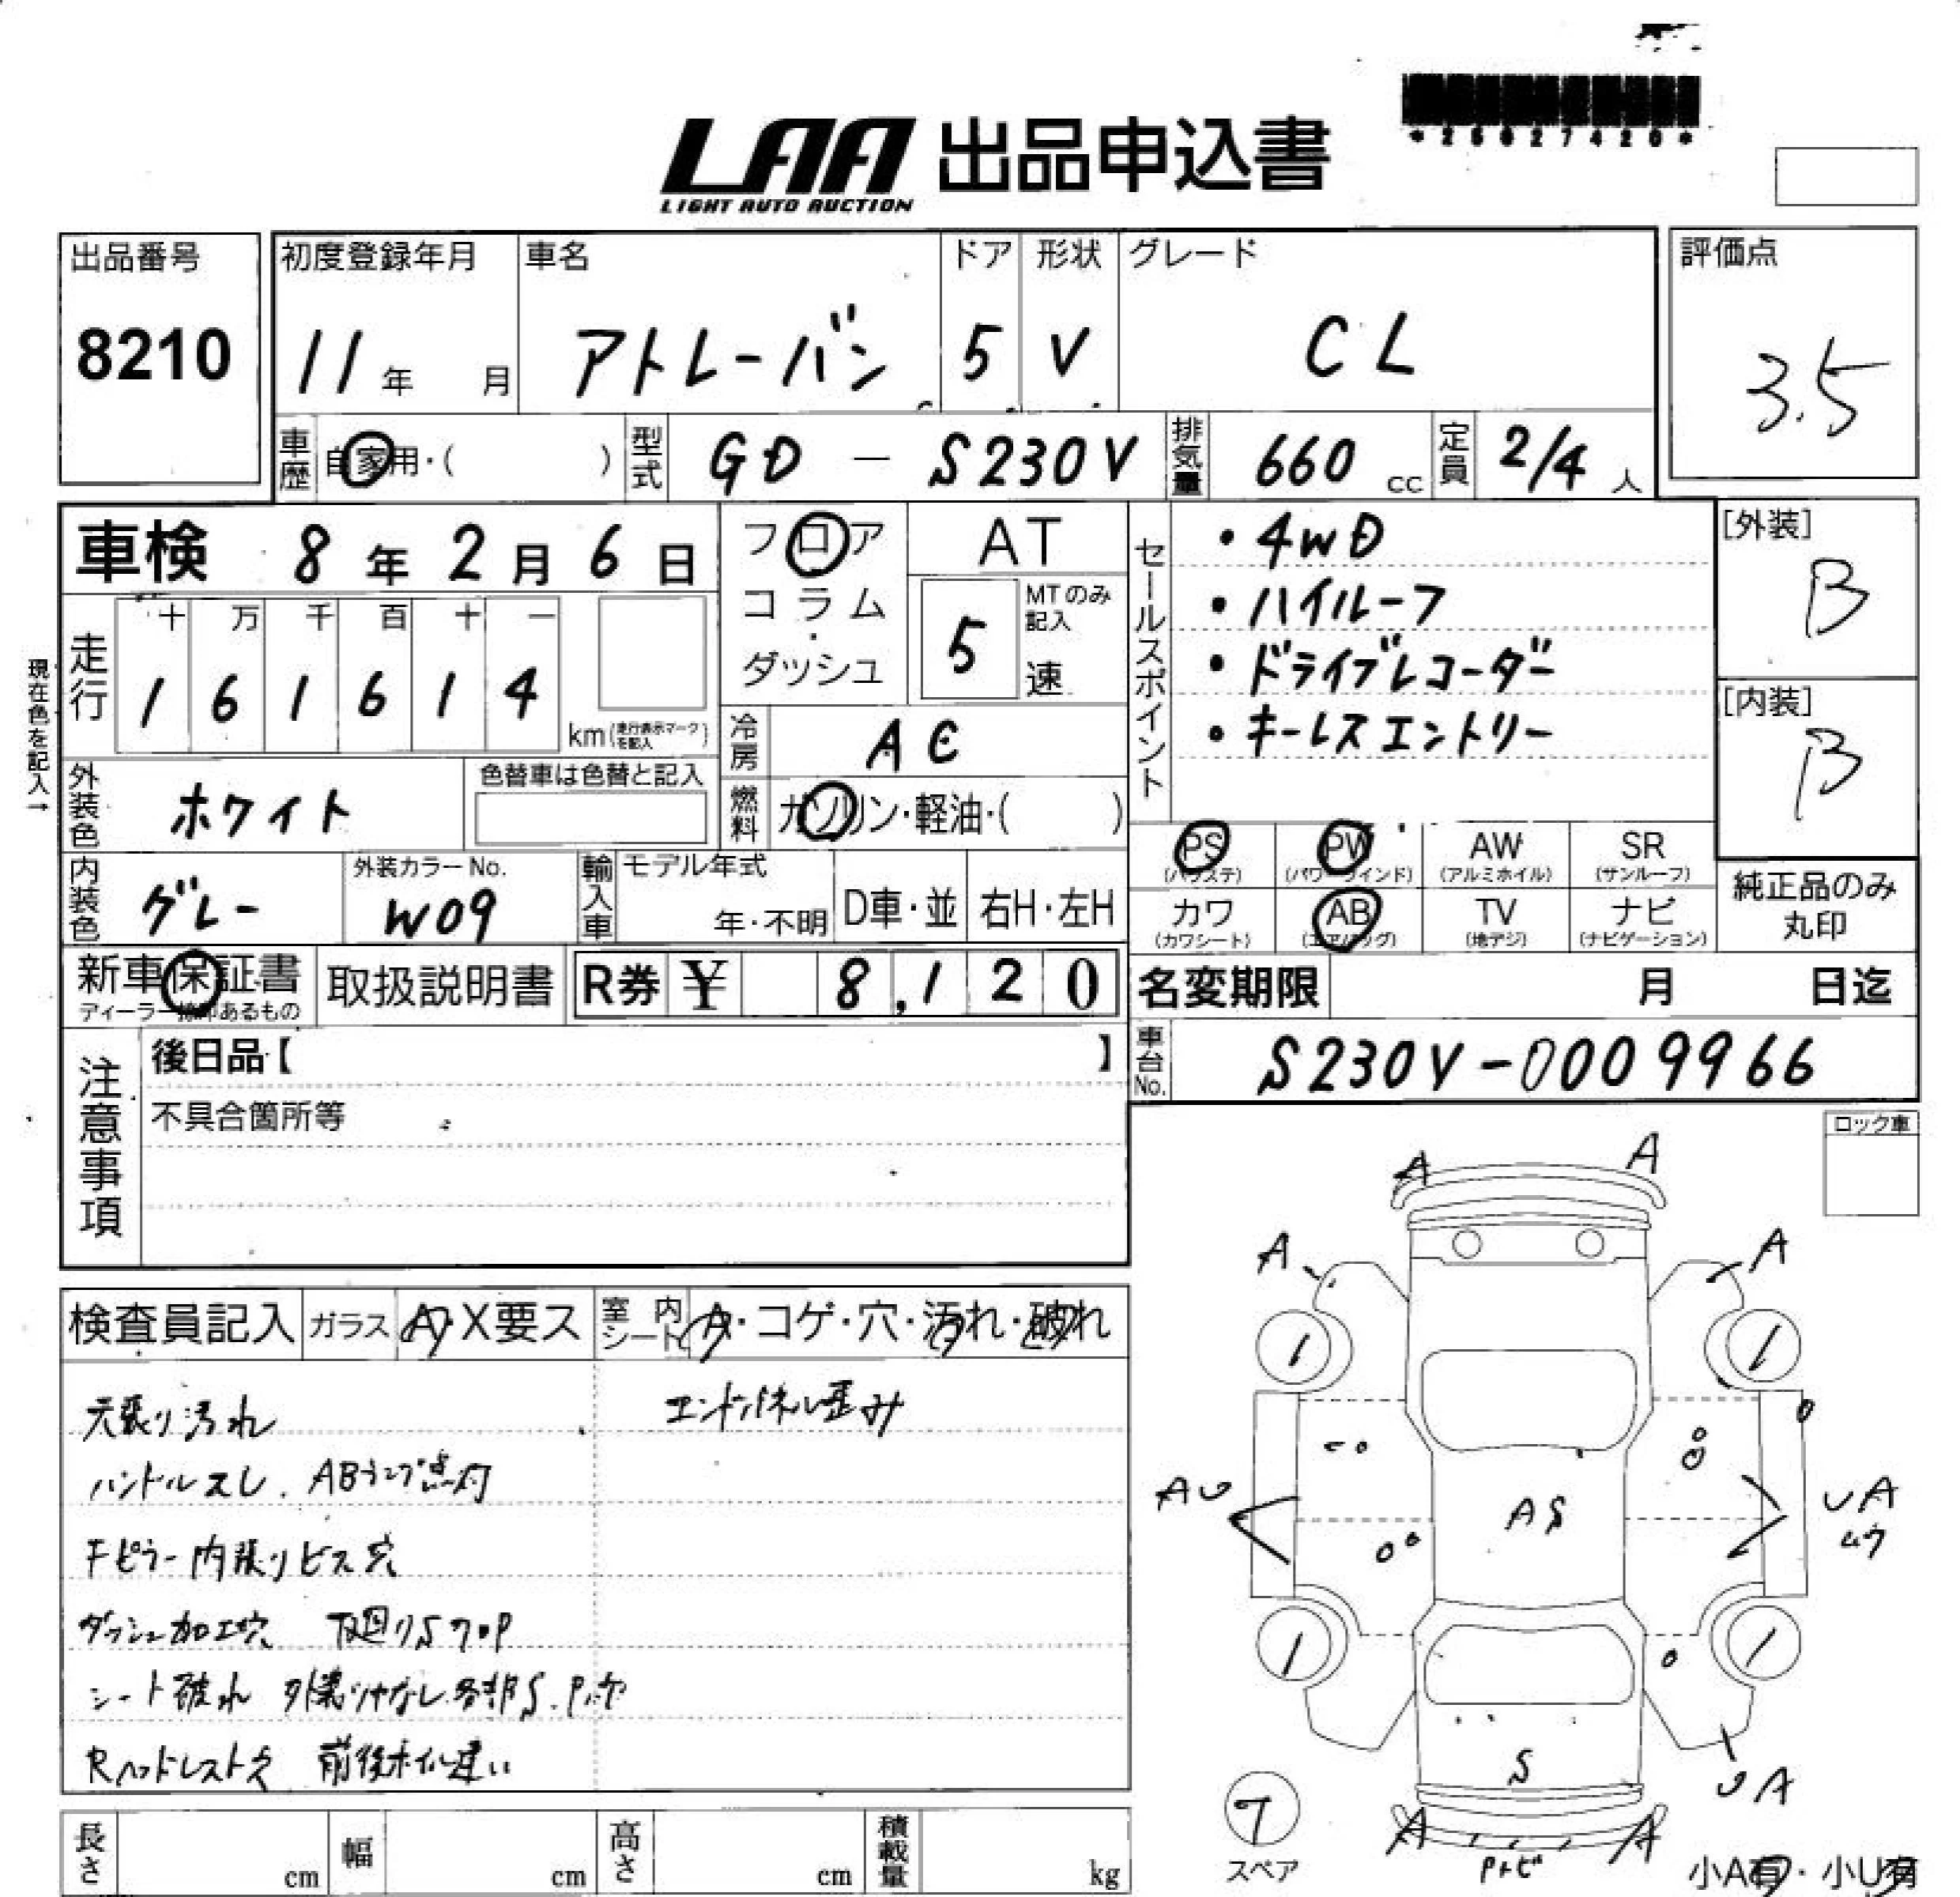 *25027420*
LAA 出品申込書
LIGHT AUTO AUCTION
出品番号
8210
初度登録年月
11年 月
車名
アトレーバン
ドア
5
形状
V
グレード
CL
評価点
3.5
車歴
自家用・( )
型式
GD - S230V
排気量
660 cc
定員
2/4 人
車検 8年 2月 6日
現在色を記入→
走行
十 万 千 百 十 一
1 6 1 6 1 4
km(走行表示マークを記入)
フロア
コラム
・
ダッシュ
AT
5
MTのみ記入
速
冷房
AC
燃料
ガソリン・軽油・( )
セールスポイント
・4WD
・ハイルーフ
・ドライブレコーダー
・キーレスエントリー
[外装]
B
[内装]
B
外装色
ホワイト
色替車は色替と記入
内装色
グレー
外装カラーNo.
W09
輸入車
モデル年式
年・不明
D車・並
右H・左H
PS
(パワステ)
PW
(パワーウィンド)
AW
(アルミホイル)
SR
(サンルーフ)
カワ
(カワシート)
AB
(エアバッグ)
TV
(地デジ)
ナビ
(ナビゲーション)
純正品のみ
丸印
新車保証書
ディーラー捺印あるもの
取扱説明書
R券 ¥ 8,120
名変期限 月 日迄
車台No.
S230V-0009966
注意事項
後日品【 】
不具合箇所等
ロック車
検査員記入
ガラス
A・X要ス
室内シート
A・コゲ・穴・汚れ・破れ
天張り汚れ
エンドパネル歪み
ハンドルスレ. ABランプ点灯
Fピラー内張りビス穴
ダッシュ加工穴 下廻りS
シート破れ
Rヘッドレスト欠 前後ホイル違い
A A
A A
1 1
AU
AS
UA
1 1
S
UA
A A
Pトビ
7
スペア
小A有・小U有
長さ cm
幅 cm
高さ cm
積載量 kg